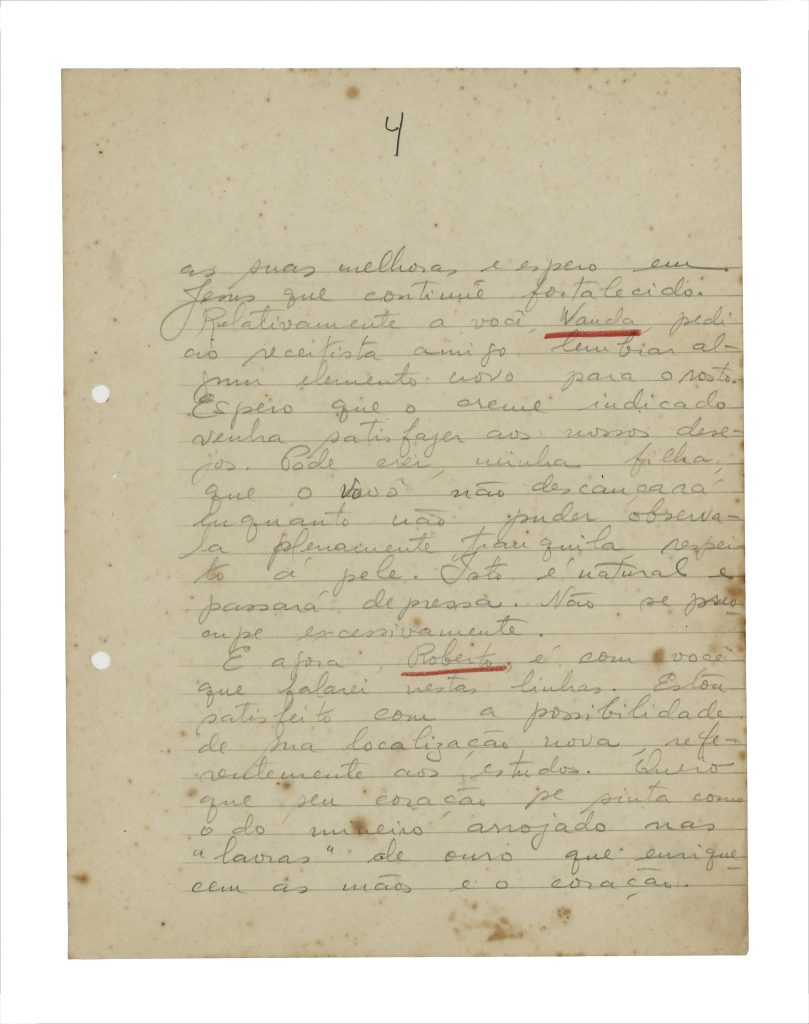 4
as suas melhoras e espero em
Jesus que continuê fortalecido.
Relativamente a você, Wanda, pedi
ao receitista amigo lembrar al-
gum elemento novo para o rosto.
Espero que o creme indicado
venha satisfazer aos nossos dese-
jos. Póde crer, minha filha,
que o vovô não descançará
enquanto não puder observa-
la plenamente tranquila, respei-
to á pele. Isto é natural e
passará depressa. Não se preo-
cupe excessivamente.
E agora, Roberto, é com você
que falarei nestas linhas. Estou
satisfeito com a possibilidade
de sua localização nova, refe-
rentemente aos estudos. Quero
que seu coração se sinta como
o do mineiro arrojado nas
"lavras" de ouro que enrique-
cem as mãos e o coração.